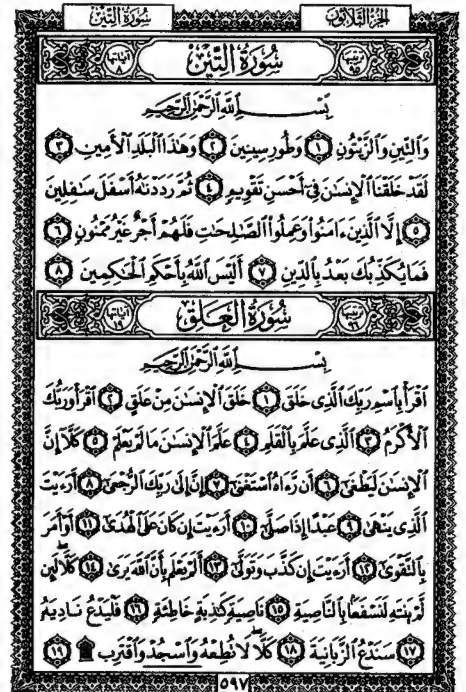 الجزء الثلاثون
سورة التين
ترتيبها ٩٥
سُورَةُ التِّينِ
آياتها ٨
بِسْمِ ٱللَّهِ ٱلرَّحْمَٰنِ ٱلرَّحِيمِ
وَٱلتِّينِ وَٱلزَّيْتُونِ ١ وَطُورِ سِينِينَ ٢ وَهَٰذَا ٱلْبَلَدِ ٱلْأَمِينِ ٣
لَقَدْ خَلَقْنَا ٱلْإِنسَٰنَ فِىٓ أَحْسَنِ تَقْوِيمٍ ٤ ثُمَّ رَدَدْنَٰهُ أَسْفَلَ سَٰفِلِينَ
٥ إِلَّا ٱلَّذِينَ ءَامَنُوا۟ وَعَمِلُوا۟ ٱلصَّٰلِحَٰتِ فَلَهُمْ أَجْرٌ غَيْرُ مَمْنُونٍ ٦
فَمَا يُكَذِّبُكَ بَعْدُ بِٱلدِّينِ ٧ أَلَيْسَ ٱللَّهُ بِأَحْكَمِ ٱلْحَٰكِمِينَ ٨
ترتيبها ٩٦
سُورَةُ العَلَقِ
آياتها ١٩
بِسْمِ ٱللَّهِ ٱلرَّحْمَٰنِ ٱلرَّحِيمِ
ٱقْرَأْ بِٱسْمِ رَبِّكَ ٱلَّذِى خَلَقَ ١ خَلَقَ ٱلْإِنسَٰنَ مِنْ عَلَقٍ ٢ ٱقْرَأْ وَرَبُّكَ
ٱلْأَكْرَمُ ٣ ٱلَّذِى عَلَّمَ بِٱلْقَلَمِ ٤ عَلَّمَ ٱلْإِنسَٰنَ مَا لَمْ يَعْلَمْ ٥ كَلَّآ إِنَّ
ٱلْإِنسَٰنَ لَيَطْغَىٰٓ ٦ أَن رَّءَاهُ ٱسْتَغْنَىٰٓ ٧ إِنَّ إِلَىٰ رَبِّكَ ٱلرُّجْعَىٰٓ ٨ أَرَءَيْتَ
ٱلَّذِى يَنْهَىٰ ٩ عَبْدًا إِذَا صَلَّىٰٓ ١٠ أَرَءَيْتَ إِن كَانَ عَلَى ٱلْهُدَىٰٓ ١١ أَوْ أَمَرَ
بِٱلتَّقْوَىٰٓ ١٢ أَرَءَيْتَ إِن كَذَّبَ وَتَوَلَّىٰٓ ١٣ أَلَمْ يَعْلَم بِأَنَّ ٱللَّهَ يَرَىٰ ١٤ كَلَّا لَئِن
لَّمْ يَنتَهِ لَنَسْفَعًۢا بِٱلنَّاصِيَةِ ١٥ نَاصِيَةٍ كَٰذِبَةٍ خَاطِئَةٍ ١٦ فَلْيَدْعُ نَادِيَهُۥ
١٧ سَنَدْعُ ٱلزَّبَانِيَةَ ١٨ كَلَّا لَا تُطِعْهُ وَٱسْجُدْ وَٱقْتَرِب ۩ ١٩
٥٩٧